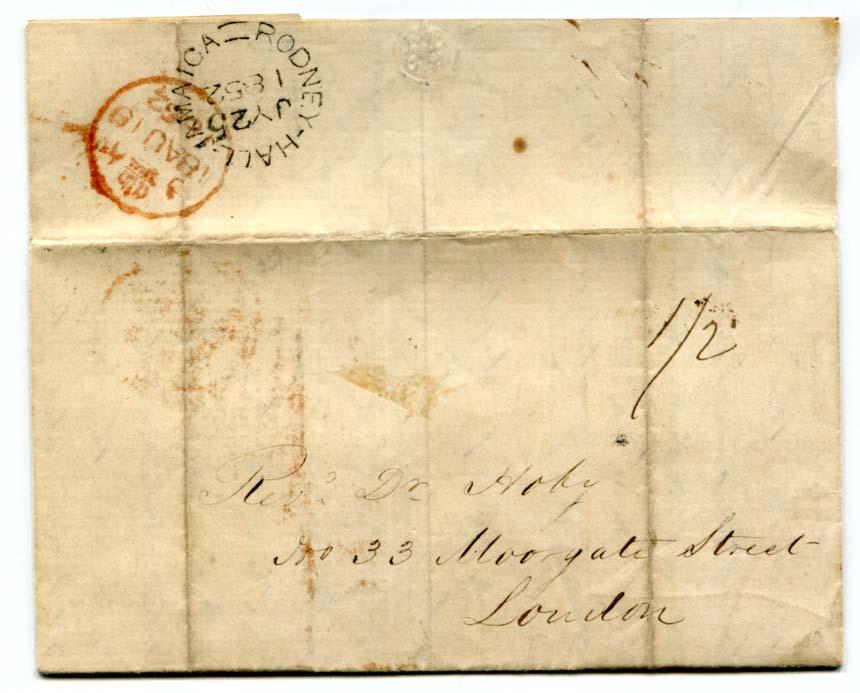 RODNEY-HALL JAMAICA
JY 25
1852
AU 19
1852
1/2
Revd. Dr. Hoby
No 33 Moorgate Street
London